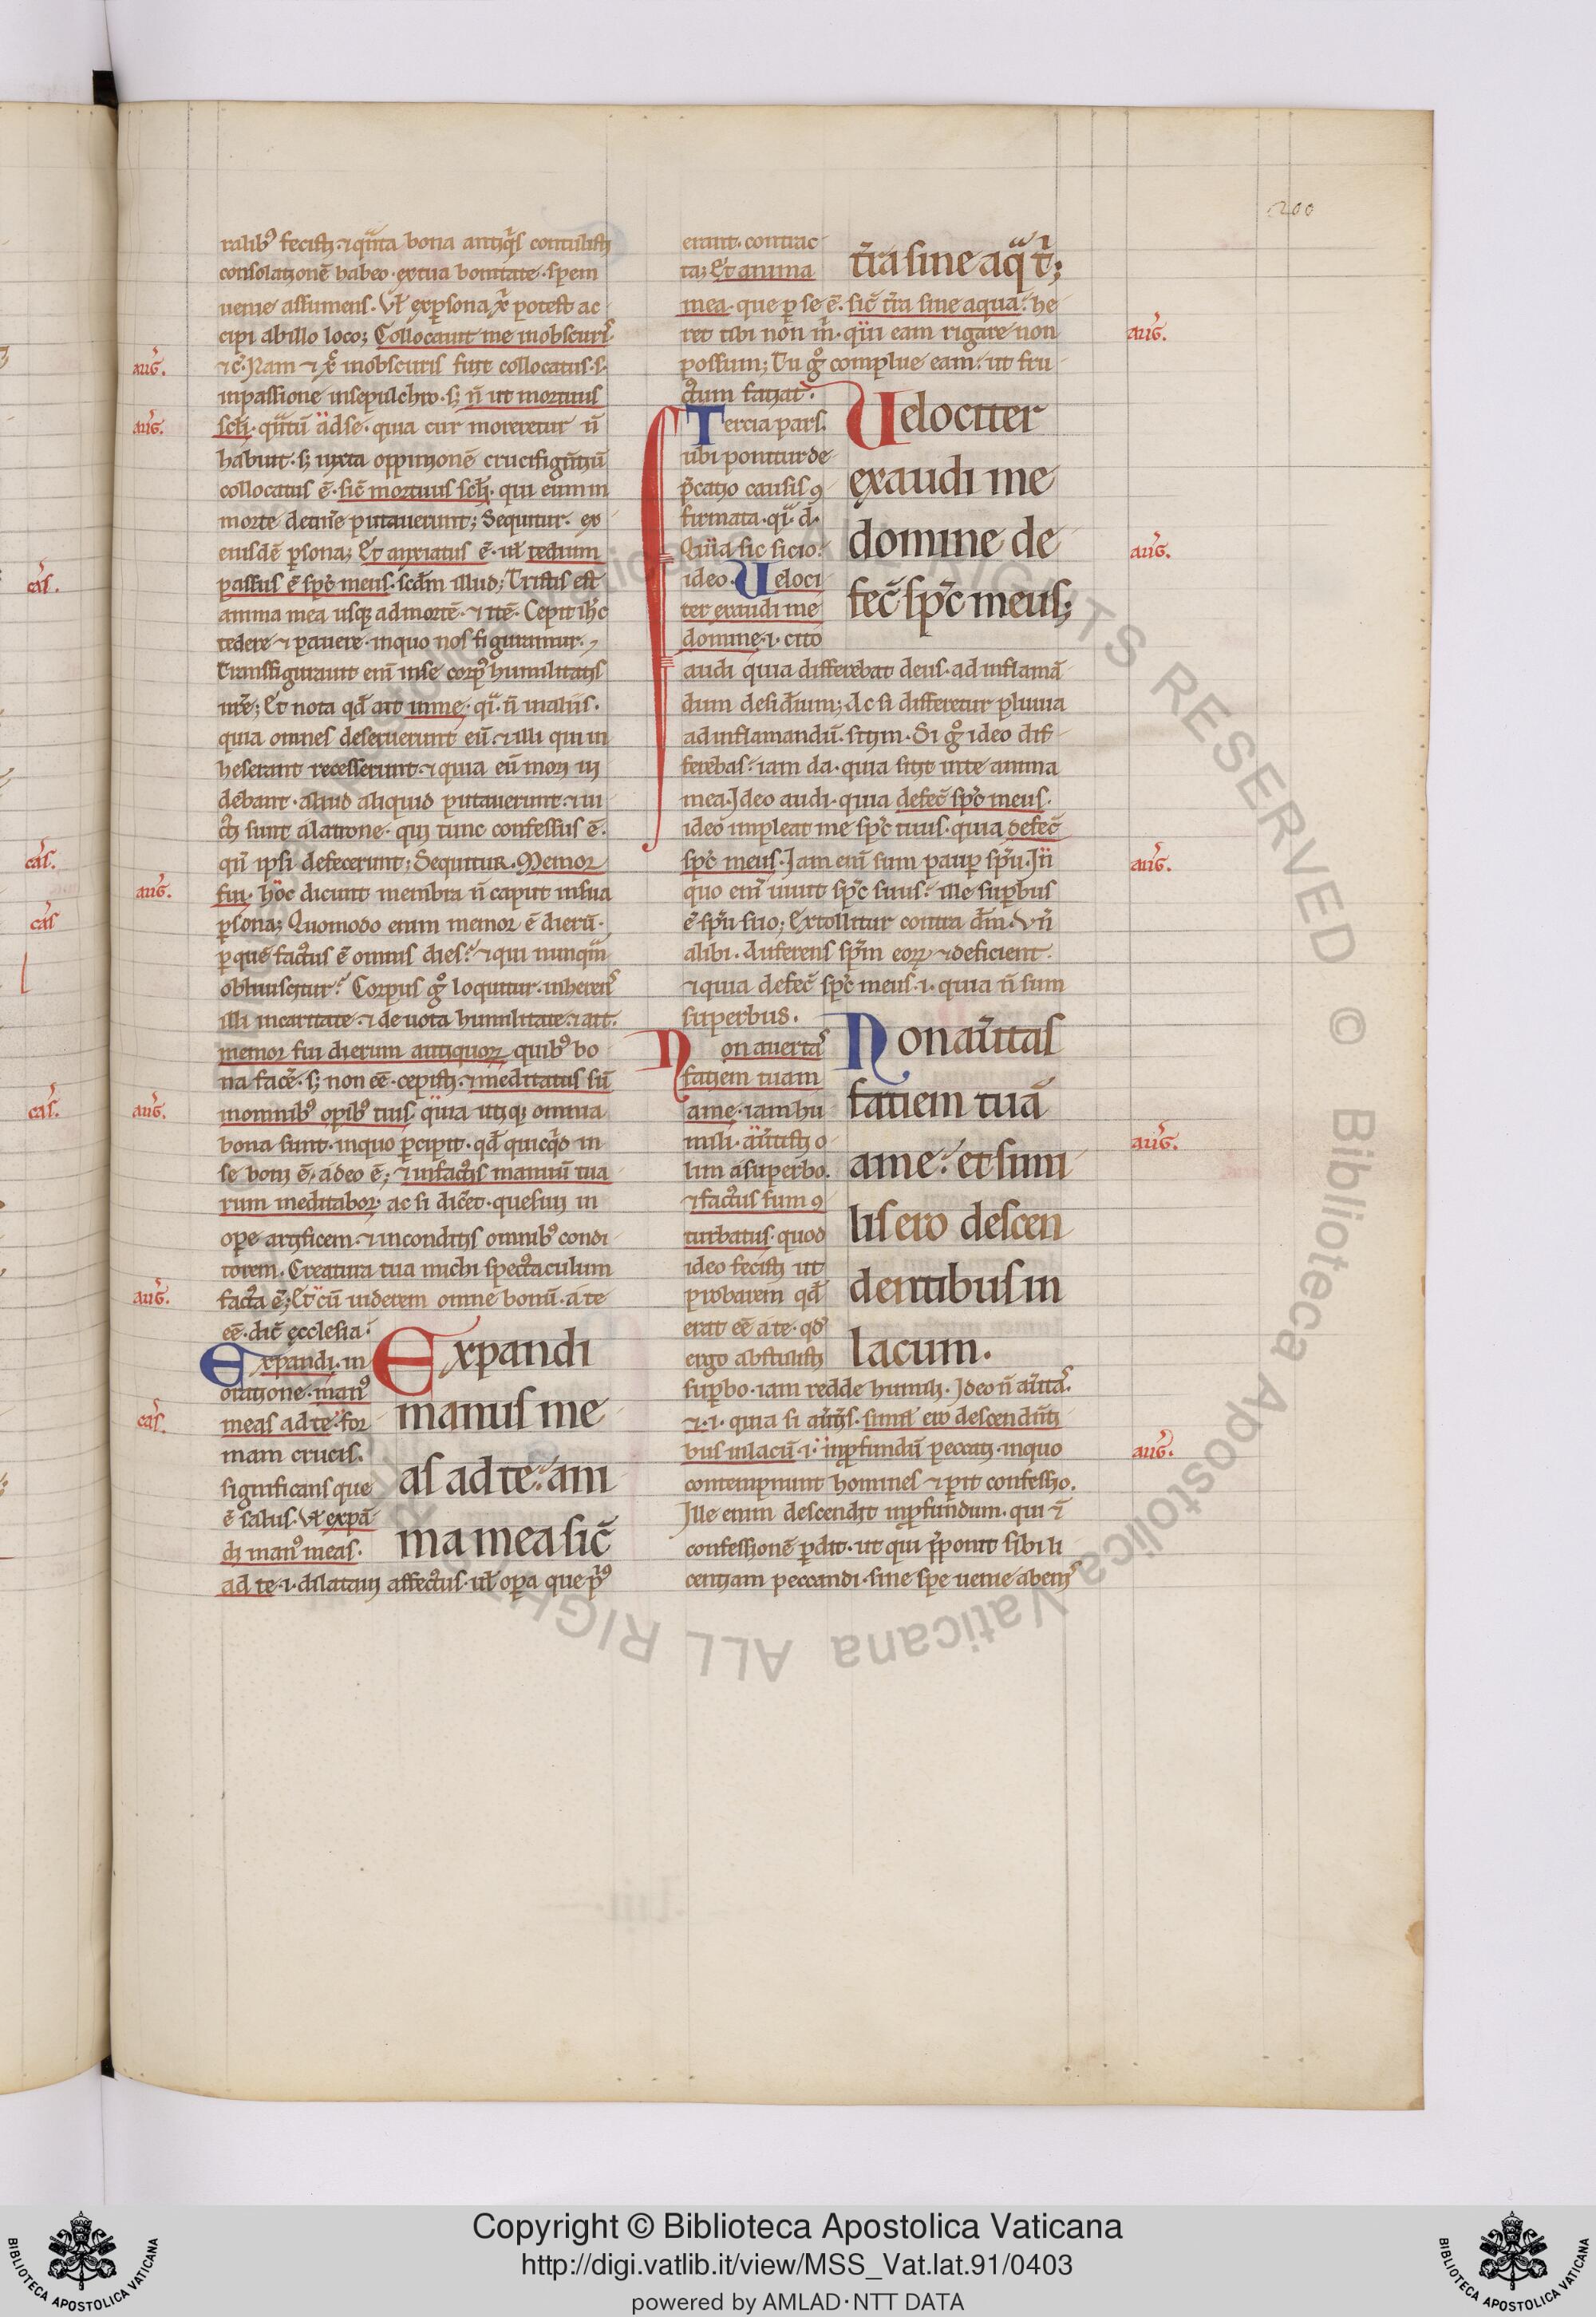 200
ralib᷒ fecisti · ⁊ quanta bona antiq̇s contulisti
consolationē habeo · ex tua bonitate · spem
uenie assumens · Vł ex p̱sona xp̄i potest ac
cipi ab illo loco; Collocauit me in obscuris
⁊c̄ · Nam ⁊ xp̄c in obscuris fuit collocatus · s ·
in passione in sepulchro · s; n̄ ut mortuus
scłi · quātū ad se · quia cur moreretur n̄
habuit · s; iuxta oppinionē crucifigentiū
collocatus ē · sic̄ mortuus scłi · qui eum in
morte detinē putauerunt; Sequitur · ex
eiusdē p̱sona; Et anxiatus ē · uł tedium
passus ē sp̄c meus · scđm illud; Tristis est
anima mea usq; ad mortē · ⁊ itē · Cepit ih̄c
tedere ⁊ pauere · in quo nos figuramur ·
Transfigurauit enī in se corp᷒ humilitatis
nr̄e; Et nota qđ ait in me · qͣ · n̄ in aliis ·
quia omnes deseruerunt eū · ⁊ illi qui in
heserant recesserunt · ⁊ quia eū mori ui
debant · aliud aliquid putauerunt · ⁊ ui
cti sunt a latrone · qui tunc confessus ē ·
qn̄ ipsi defecerunt; Sequitur · Memor
fui · hoc dicunt membra n̄ caput in sua
p̱sona; Quomodo enim memor ē dierū ·
p̱ quē factus ē omnis dies? ⁊ qui nunquam
obliuiscitur? Corpus g͛ loquitur · inherens
illi in caritate · ⁊ deuota humilitate · ⁊ ait ·
memor fui dierum antiquoꝝ quib᷒ bo
na facē · s; non eē · cepisti · ⁊ meditatus sū
in omnib᷒ op̱ib᷒ tuis quia utiq; omnia
bona sunt · in quo p̱cipit · qđ quicq͛d in
se boni ē · a deo ē; ⁊ in factis manuū tua
rum meditabor · ac si dic̄et · quesiui in
ope artificem · ⁊ in conditis omnib᷒ condi
torem · Creatura tua michi spectaculum
facta ē; Et cū uiderem omne bonū · a te
eē · dic̄ ecclesia ·
Expandi · in
oratione · man᷒
meas ad te · for
mam crucis ·
significans que
ē salus · Vł expā
di man᷒ meas ·
ad te · i · dilataui affectus · uł opa que p͛᷒
Expandi
manus me
as ad te: ani
ma mea sic̄
erant · contrac
ta; Et anima
mea · que p̱ se ē · sic̄ tr̄a sine aqua · he
ret tibi non m̄ · quia eam rigare non
possum; Tu g͛ complue eam · ut fru
ctum faciat ·
tr̄a sine aqͣ t͛;
Tercia pars ·
ubi ponitur de
p̄catio causis ꝯ
firmata · qͣ · d ·
Quia sic sicio ·
ideo · Veloci
ter exaudi me
domine · i · cito
audi quia differebat deus · ad inflamā
dum desideriū; Ac si differetur pluuia
ad inflamandū · sitim · Si g͛ ideo dif
ferebas · iam da · quia sitit in te anima
mea · Ideo audi · quia defec̄ sp̄c meus ·
ideo impleat me sp̄c tuus · quia defec̄
sp̄c meus · Iam enī sum paup̱ sp̄u · In
quo enī uiuit sp̄c suus · ille sup̱bus
ē sp̄u suo; Extollitur contra dn̄m · Vn̄
alibi · Auferens sp̄m eoꝝ ⁊ deficient ·
⁊ quia defec̄ sp̄c meus · i · quia n̄ sum
superbus ·
Velociter
exaudi me
domine de
fec̄ sp̄c meus;
Non auertas
faciem tuam
a me · iam hu
mili · auertisti o
lim a superbo ·
⁊ factus sum ꝯ
turbatus · quod
ideo fecisti ut
probarem qđ
erat eē a te · qđ
ergo abstulisti
sup̱bo · iam redde humili · Ideo n̄ au͛tas ·
⁊ · i · quia si au͛tis · similis ero descendēti
bus in lacū · i · in p̱fundū peccati · in quo
contempnunt homines ⁊ p̱it confessio ·
Ille enim descendit in p̱fundum · qui ⁊
confessionē p̱dit · ut qui p̄ponit sibi li
centiam peccandi · sine spe uenie abeuns
Non au͛tas
faciem tuā
a me: et simi
lis ero descen
dentibus in
lacum ·
aug̃ ·
aug̃ ·
aug̃ ·
aug̃ ·
aug̃ ·
cas̃ ·
aug̃ ·
aug̃ ·
aug̃ ·
aug̃ ·
aug̃ ·
cas̃ ·
cas̃ ·
cas̃
cas̃ ·
Biblioteca Apostolica Vaticana ALL RIGHTS RESERVED ©
Copyright © Biblioteca Apostolica Vaticana
http://digi.vatlib.it/view/MSS_Vat.lat.91/0403
powered by AMLAD·NTT DATA
BIBLIOTECA APOSTOLICA VATICANA
BIBLIOTECA APOSTOLICA VATICANA